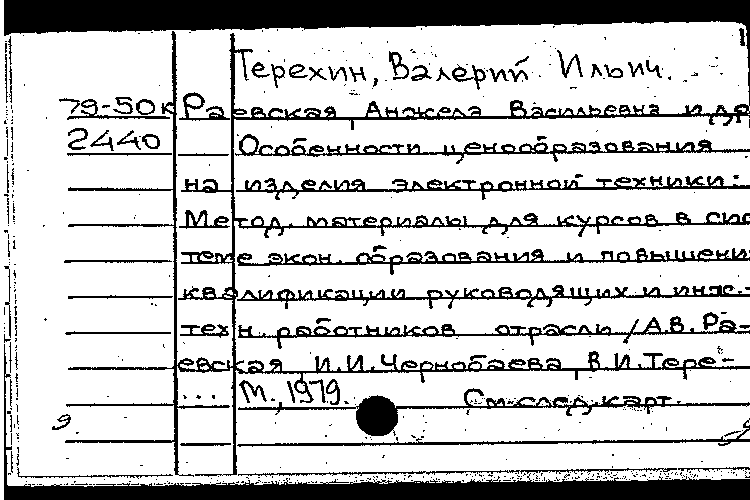 Терехин, Валерий Ильич.
79-50к Раевская, Анжела Васильевна и др
2440 Особенности ценообразования
на изделия электронной техники:
Метод. материалы для курсов в сис
теме экон. образования и повышени
квалификации руководящих и инж.-
техн. работников отрасли / А.В. Ра-
евская, И.И. Чернобаева, В.И. Тере-
... М., 1979. См. след. карт.
9